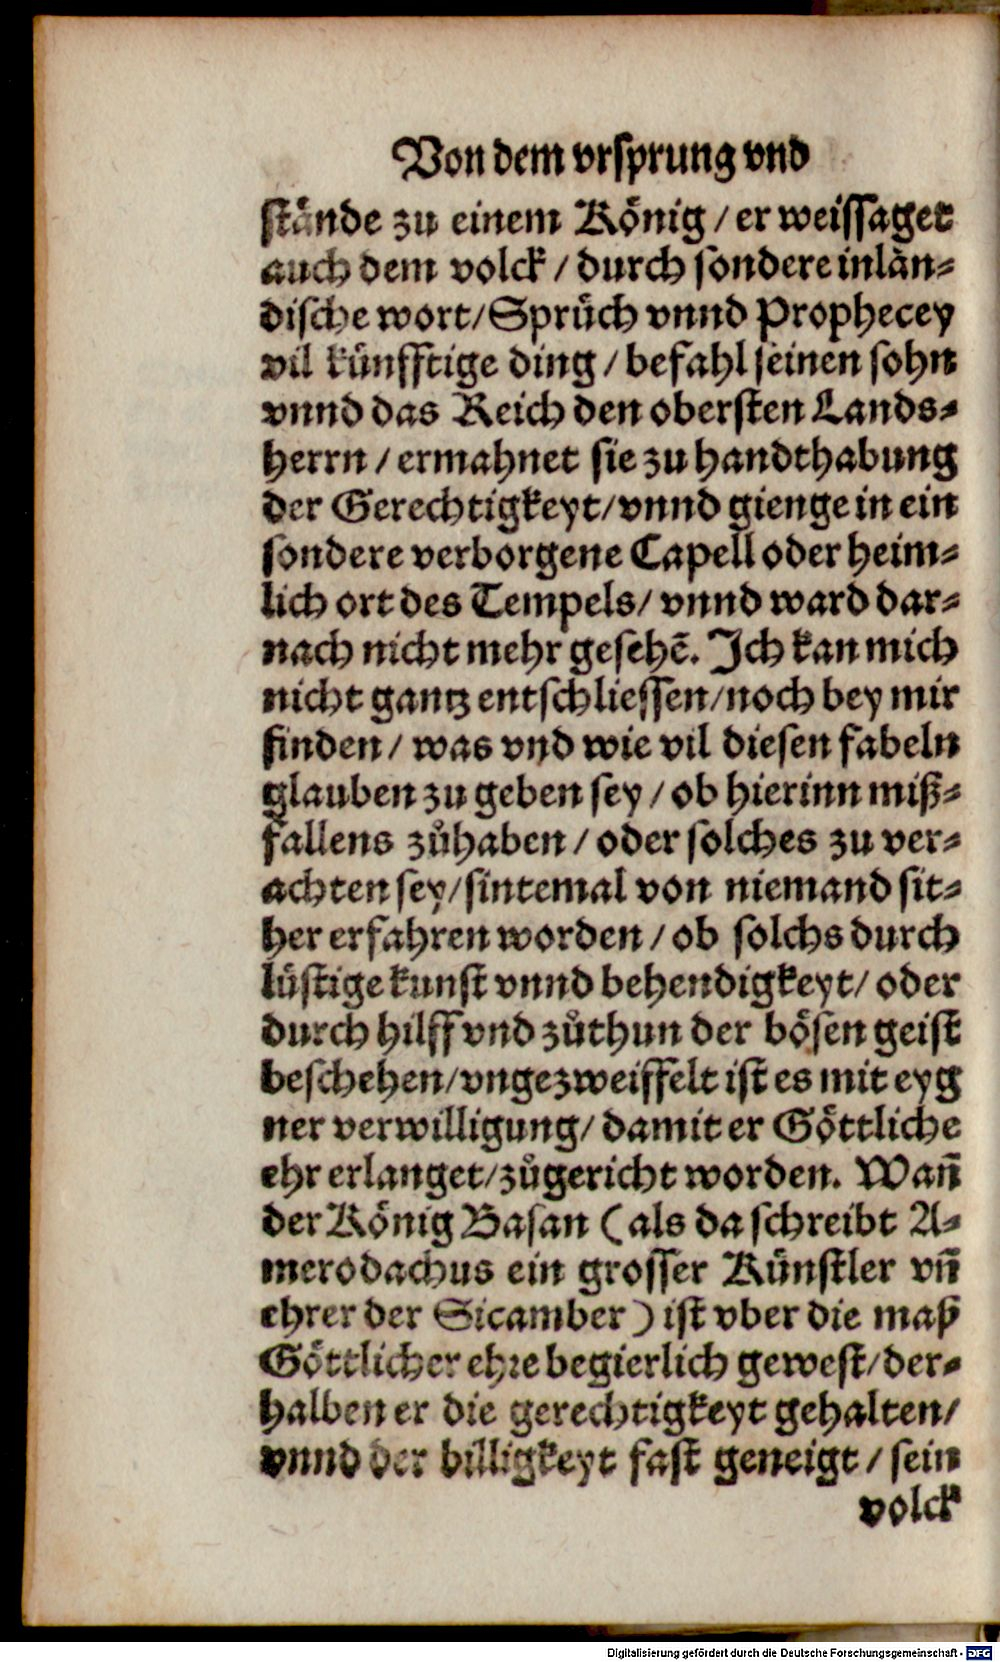 Von dem vrsprung vnd
stände zu einem König / er weissaget
auch dem volck / durch sondere inlän-
dische wort / Sprüch vnnd Prophecey
vil künfftige ding / befahl seinen sohn
vnnd das Reich den obersten Lands-
herrn / ermahnet sie zu handthabung
der Gerechtigkeyt / vnnd gienge in ein
sondere verborgene Capell oder heim-
lich ort des Tempels / vnnd ward dar-
nach nicht mehr gesehẽ. Ich kan mich
nicht gantz entschliessen / noch bey mir
finden / was vnd wie vil diesen fabeln
glauben zu geben sey / ob hierinn miß-
fallens zůhaben / oder solches zu ver-
achten sey / sintemal von niemand sit-
her erfahren worden / ob solchs durch
lüstige kunst vnnd behendigkeyt / oder
durch hilff vnd zůthun der bösen geist
beschehen / vngezweiffelt ist es mit eyg
ner verwilligung / damit er Göttliche
ehr erlanget / zůgericht worden. Wañ
der König Basan (als da schreibt A-
merodachus ein grosser Künstler vñ
ehrer der Sicamber) ist vber die maß
Göttlicher ehre begierlich gewest / der-
halben er die gerechtigkeyt gehalten /
vnnd der billigkeyt fast geneigt / sein
volck
Digitalisierung gefördert durch die Deutsche Forschungsgemeinschaft - DFG